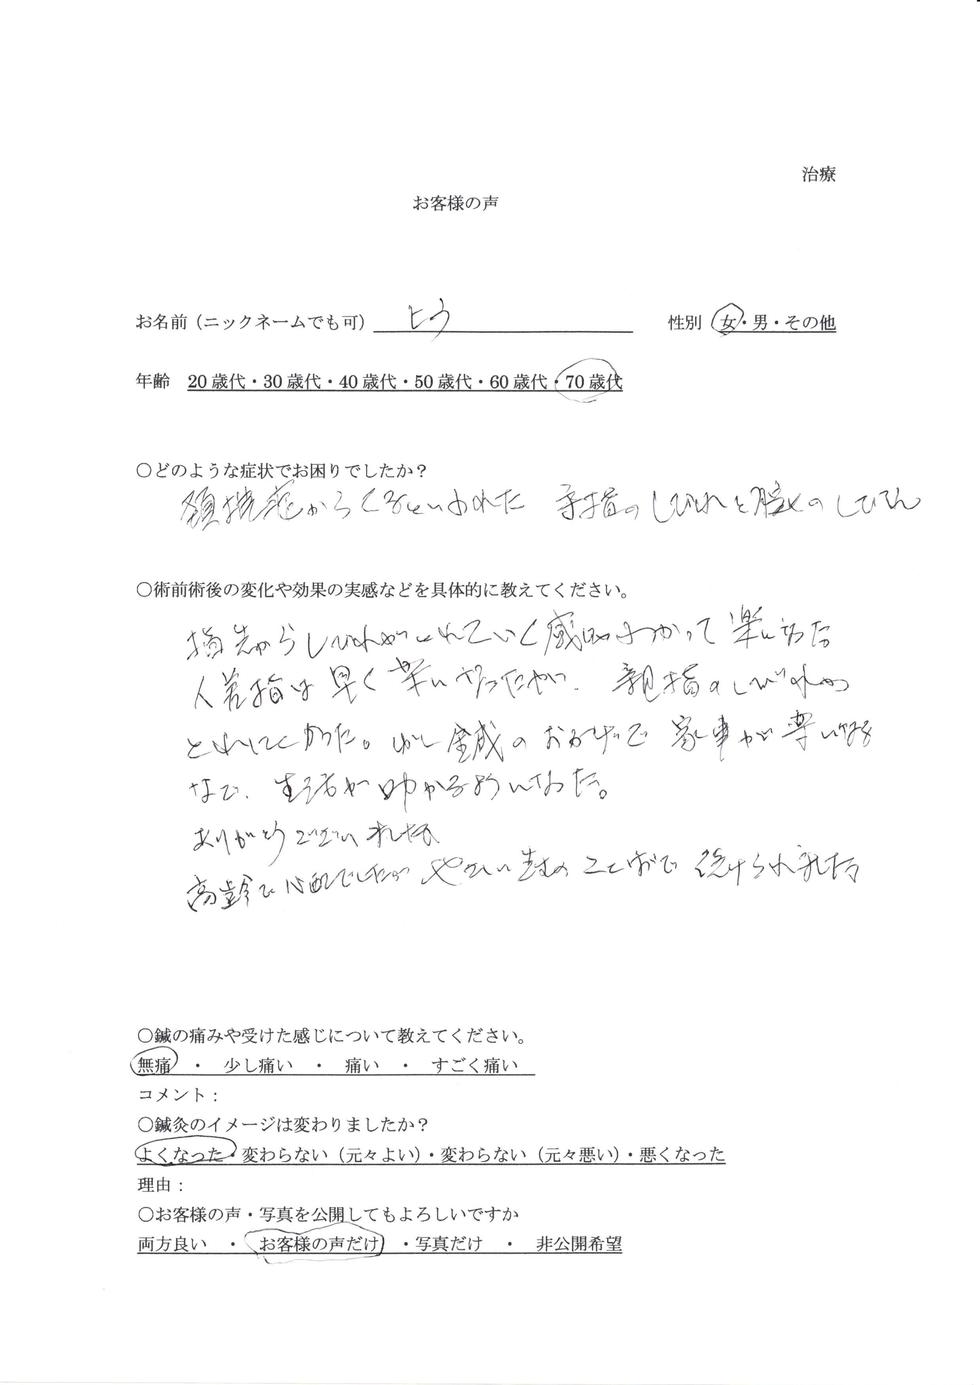 治療
お客様の声
お名前（ニックネームでも可） ヒウ 性別 女・男・その他
年齢 20歳代・30歳代・40歳代・50歳代・60歳代・70歳代
〇どのような症状でお困りでしたか？
からくるといわれた 手指のしびれと のしびれ
〇術前術後の変化や効果の実感などを具体的に教えてください。
指先からしびれがとれていく感じがわかって楽になった
人差指は早く楽になったが、親指のしびれが
とれにくかった。しかし鍼のおかげで家事が楽になる
など、生活が助かるようになった。
ありがとうございました
高齢で心配でしたが やさしい先生のことばで続けられました
〇鍼の痛みや受けた感じについて教えてください。
無痛 ・ 少し痛い ・ 痛い ・ すごく痛い
コメント：
〇鍼灸のイメージは変わりましたか？
よくなった・変わらない（元々よい）・変わらない（元々悪い）・悪くなった
理由：
〇お客様の声・写真を公開してもよろしいですか
両方良い ・ お客様の声だけ ・写真だけ ・ 非公開希望